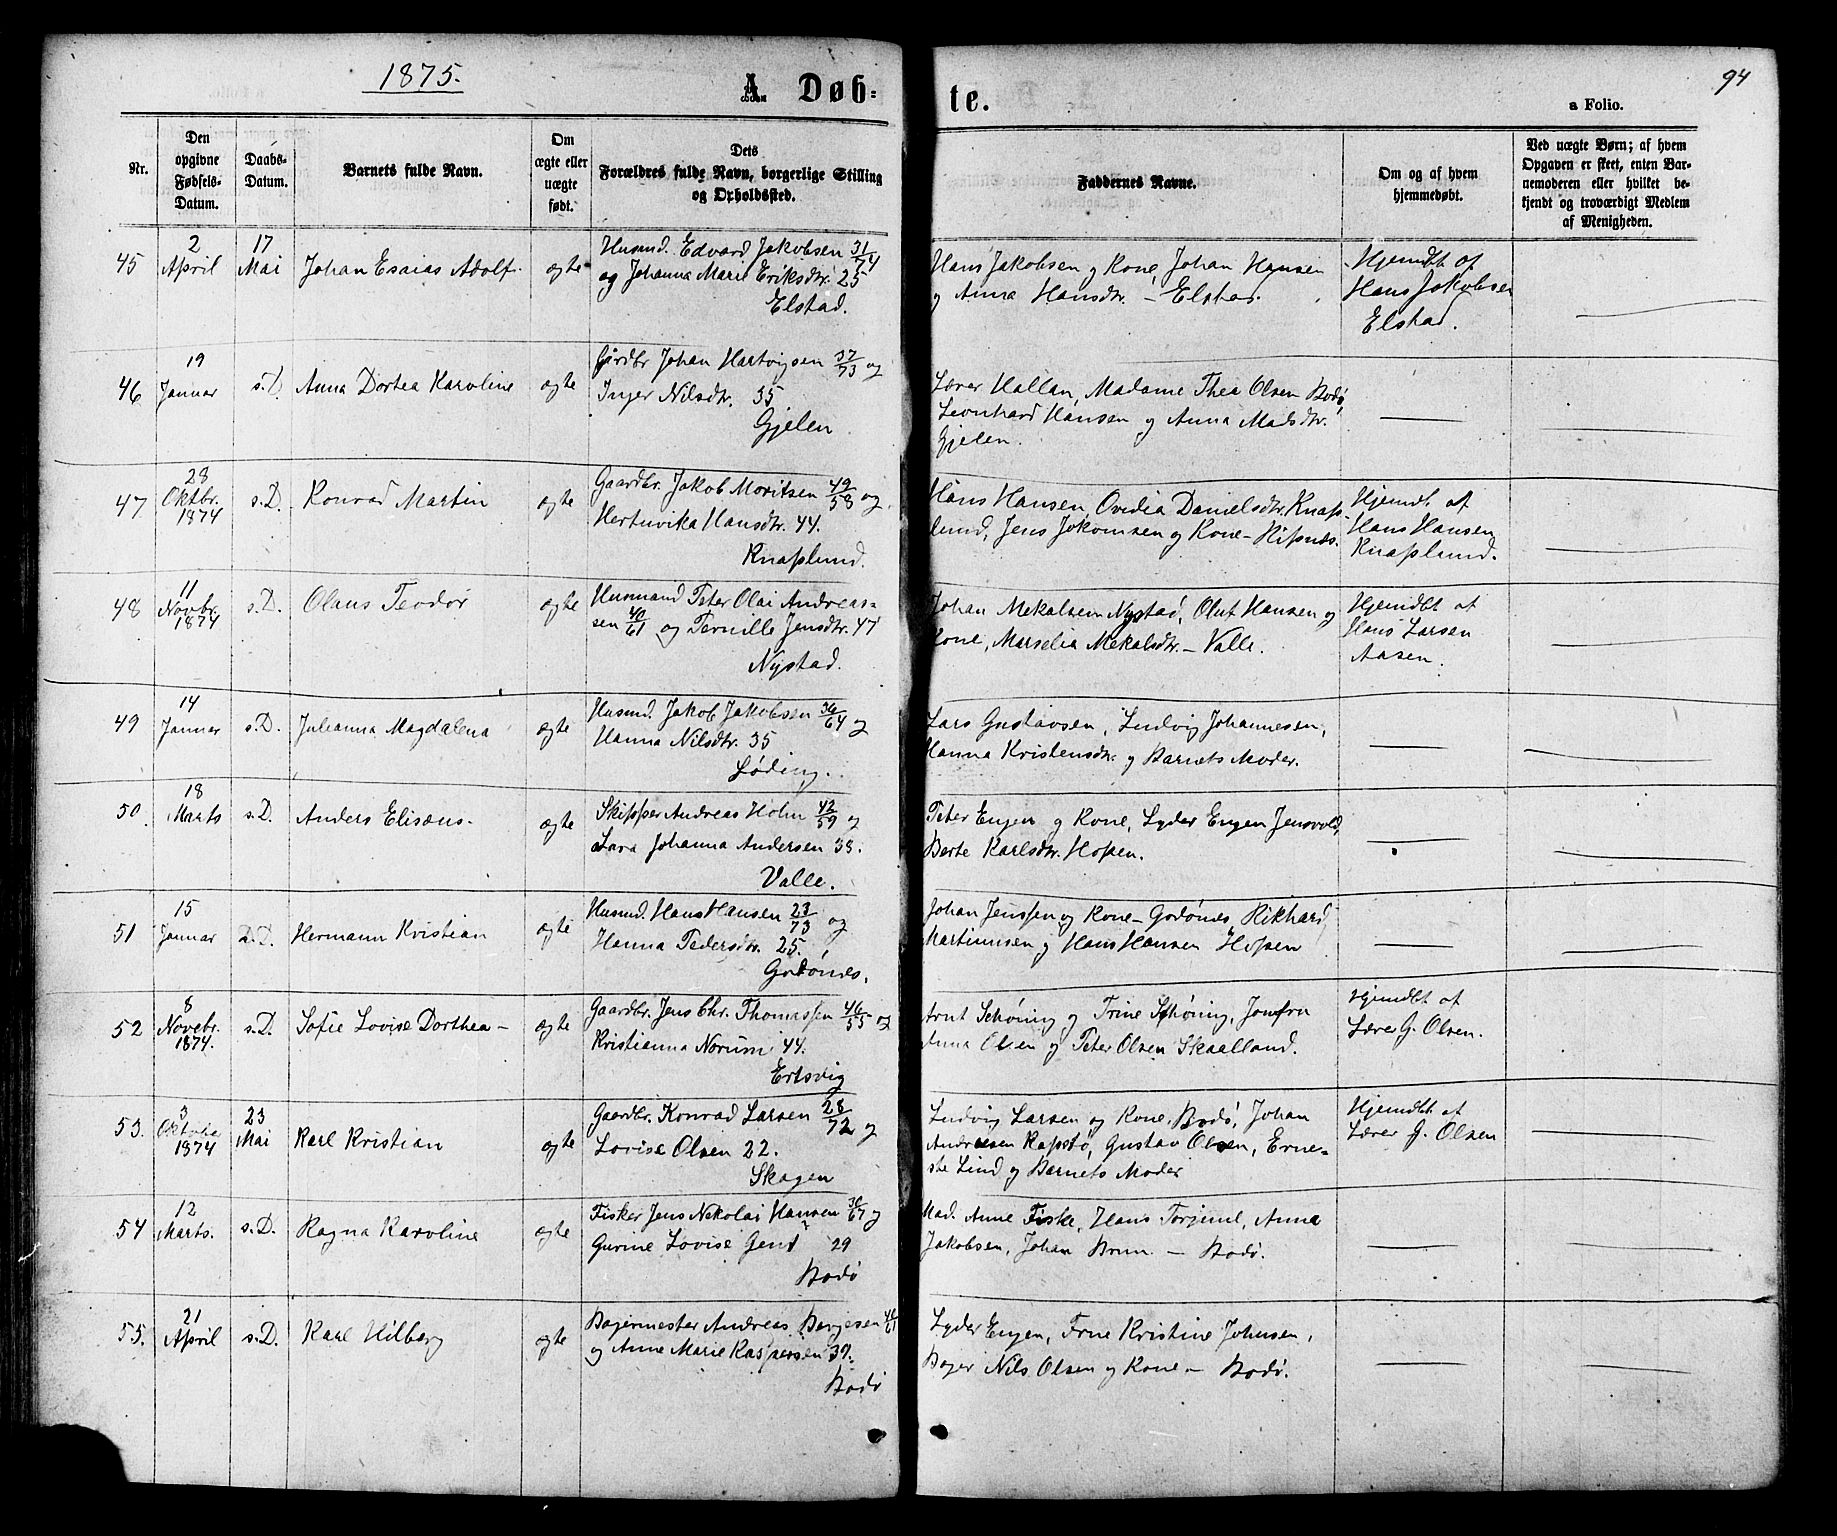 1875.
A. Døb-
te.
94
a Folio.
Nr.
Den
opgivne
Fødsels-
Datum.
Daabs-
Datum.
Barnets fulde Navn.
Om
ægte eller
uægte
født.
Dets
Forældres fulde Navn, borgerlige Stilling
og Opholdssted.
Faddernes Navne.
Om og af hvem
hjemmedøbt.
Ved uægte Børn; af hvem
Opgaven er skeet, enten Bar-
nemoderen eller hvilket be-
kjendt og troværdigt Medlem
af Menigheden.
45
2
April
17
Mai
Johan Esaias Adolf
ægte
Husmd. Edvard Jakobsen 31/74
og Johanna Marie Eriksdtr. 25
Elstad.
Hans Jakobsen og Kone, Johan Hansen
og Anna Hansdtr. – Elstad.
Hjemdbt af
Hans Jakobsen
Elstad.
46
19
Januar
s.D
Anna Dortea Karoline
ægte
Gårdbr Johan Hartvigsen 37/73 og
Inger Nilsdtr. 35
Gjelen
Lærer Hallan, Madame Thea Olsen Bodø,
Leonhard Hansen og Anna Madsdtr.
Gjelen.
47
28
Oktbr.
1874
s.D.
Konrad Martin
ægte
Gaardbr. Jakob Moritsen 49/58 og
Hertuvika Hansdtr. 44.
Knaplund.
Hans Hansen, Ovidia Danielsdtr. Knap-
lund, Jens Jakomsen og Kone –
Hjemdbt af
Hans Hansen
Knaplund.
48
11
Novbr.
1874
s.D.
Olaus Teodor
ægte
Husmand Peter Olai Andreas-
sen 40/61 og Pernille Jensdtr. 47
Nystad.
Johan Mekalsen Nystad, Oluf Hansen og
Kone, Marselia Mekalsdtr. – Valle.
Hjemdbt af
Hans Larsen
Aasen.
49
14
Januar
s.D.
Julianna Magdalena
ægte
Husmd. Jakob Jakobsen 36/64 og
Hanna Nilsdtr. 35
Løding.
Lars Gustavsen, Ludvig Johannesen,
Hanna Kristensdtr. og Barnets Moder.
50
18
Marts
s.D.
Anders Elisæus
ægte
Skipper Andreas Holm 42/59 og
Lava Johanna Andersen 38.
Valle.
Peter Engen og Kone, Lyder Engen Jensvold,
Berte Karlsdtr. Hopen.
51
15
Januar
s.D.
Hermann Kristian
ægte
Husmd. Hans Hansen 23/73 og
Hanna Pedersdtr. 25.
Godønes.
Johan Jenssen og Kone – Godønes, Rikhard
Martinussen og Hans Hansen Hopen
52
8
Novebr.
1874.
s.D.
Sofie Lovise Dorthea –
ægte
Gaardbr. Jens Chr. Thomassen 46/55 og
Kristianna Norum 44.
Ertsvig
Arnt Schøning og Trine Schøning, Jomfru
Anna Olsen og Peter Olsen Skaalland.
Hjemdbt af
Lærer G. Olsen.
53.
3
Oktober
1874
23
Mai
Karl Kristian
ægte
Gaardbr. Konrad Larsen 28/72 og
Lovise Olsen 22.
Skagen
Ludvig Larsen og Kone, Bodø, Johan
Andreasen Kapstø, Gustav Olsen, Erne-
ste Lind og Barnets Moder
Hjemdbt af
Lærer G. Olsen
54
12
Marts.
s.D.
Ragna Karoline
ægte
Fisker Jens Nekolai Hansen 30/67 og
Gurine Lovise 29
Bodø
Mad. Anne Fiske, Hans Torjeml, Anna
Jakobsen, Johan Brun – Bodø.
55.
21
April
s.D.
Karl Hilberg
ægte
Bagermester Andreas Borgesen 46/61
og Anne Marie Kaspersen 39.
Bodø
Lyder Engen, Frue Kristine Johnsen,
Bager Nils Olsen og Kone – Bodø.